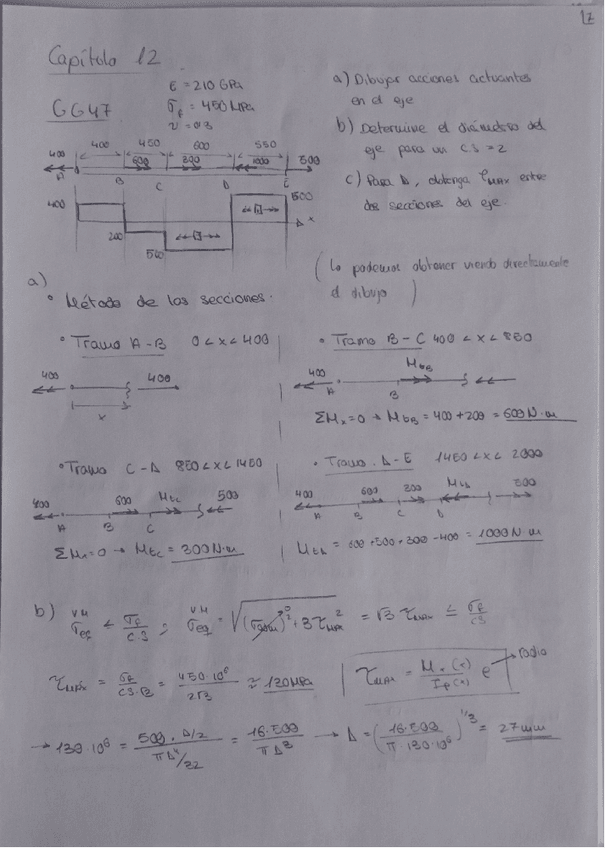 17
Capítulo 12
GG47
E = 210 GPa
σf = 450 MPa
ν = 0'3
a) Dibujar acciones actuantes en el eje
b) Determine el diámetro del eje para un C.S = 2
c) Para Δ, obtenga τMAX entre de secciones del eje.
400 450 600 550
400 600 300 1000 500
A B C D E
400 200 500 500 x
(Lo podemos obtener viendo directamente el dibujo)
a)
• Método de las secciones.
• Tramo A-B 0 < x < 400
400 400
x
• Tramo B-C 400 < x < 850
400 A B MtB
ΣMx = 0 → MtB = 400 + 200 = 600 N·m
• Tramo C-D 850 < x < 1450
400 600 Mtc 500
A B C
ΣMx = 0 → Mtc = 300 N·m
• Tramo D-E 1450 < x < 2000
400 600 300 MtD 500
A B C D
MtD = 600 + 500 + 300 - 400 = 1000 N·m
b) σeq VM < σf/CS ; σeq VM = √((σmax)² + 3τMAX²) = √3 τMAX ≤ σf/CS
τmáx = σf/(CS·√3) = 450·10⁶/(2√3) ≈ 130MPa
τMAX = Mx(x)/Ip(x) e → radio
→ 130·10⁶ = 500·Δ/2/(πΔ⁴/32) = 16·500/(πΔ³) → Δ = (16·500/(π 130·10⁶))^1/3 = 27mm